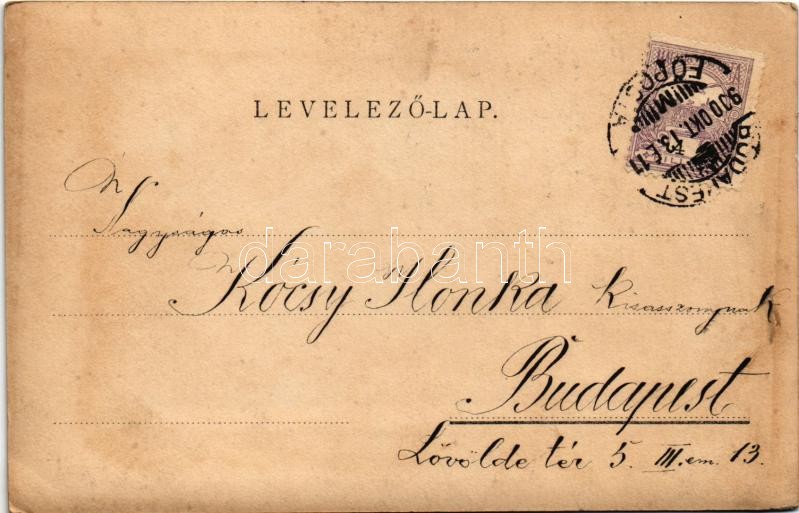 LEVELEZŐ-LAP.
BUDAPEST
FŐPOSTA
900 OKT. 13 E 11
Nagyságos
Kócsy Ilonka kisasszonynak
Budapest
Lövölde tér 5. III. em. 13.
darabanth